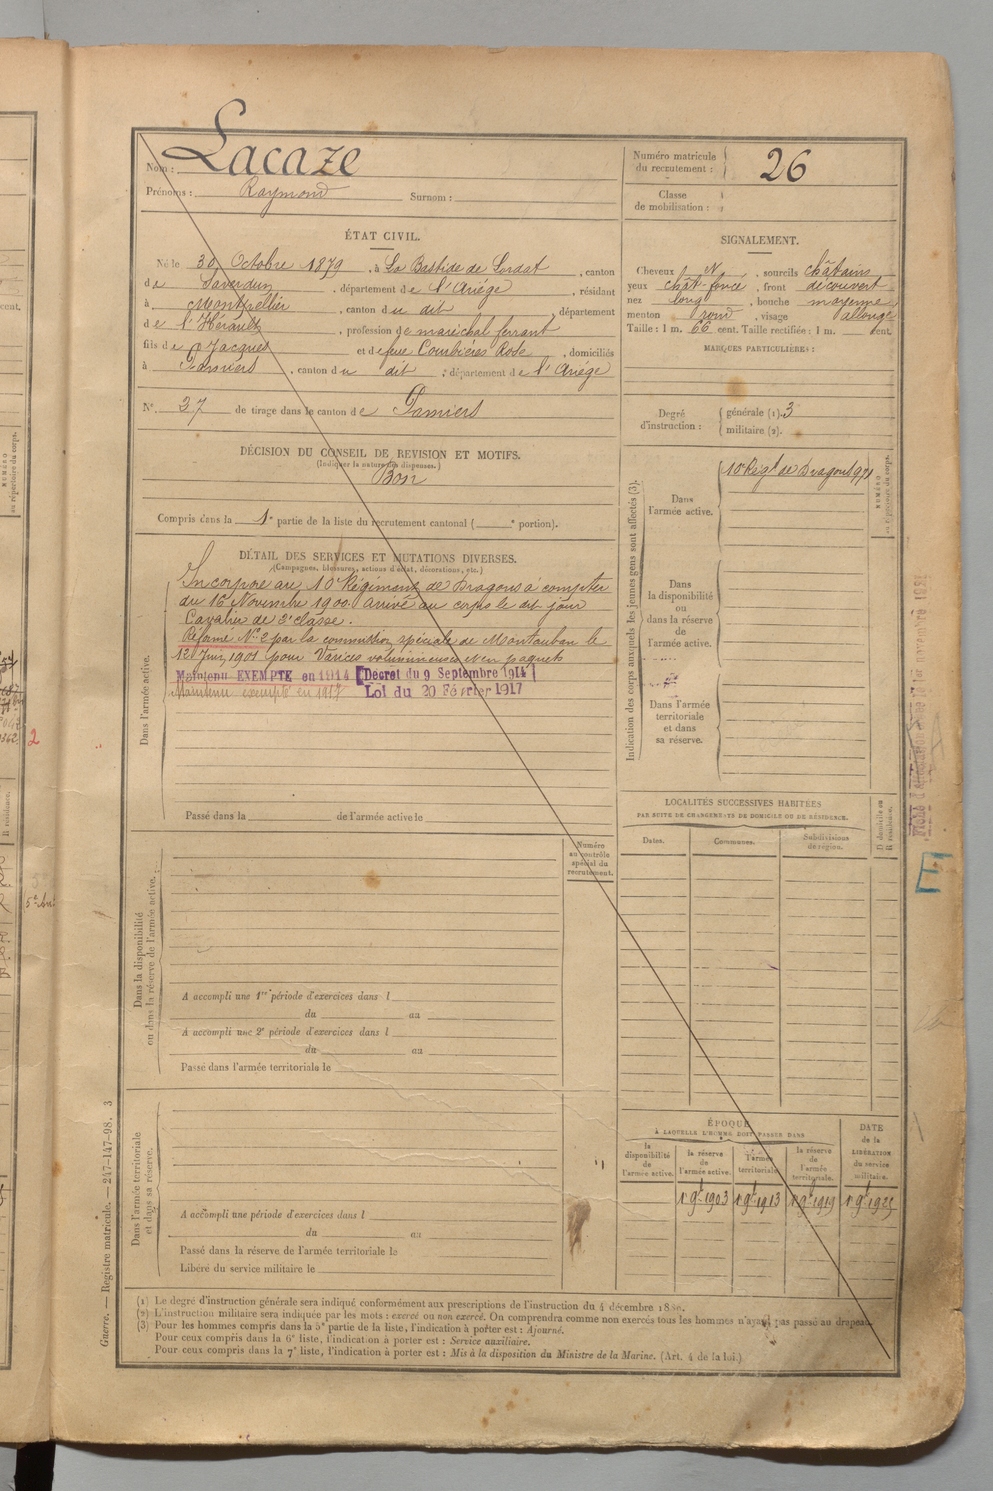 Nom : Lacaze
Prénoms : Raymond Surnom :
Numéro matricule du recrutement : 26
Classe de mobilisation :
ÉTAT CIVIL.
Né le 30 Octobre 1879, à La Bastide de Lordat, canton
de Saverdun, département de l'Ariége, résidant
à Montpellier, canton du dit, département
de l'Hérault, profession de maréchal ferrant
fils de Jacques et de feue Combières Rose, domiciliés
à Pamiers, canton du dit, département de l'Ariège
N° 37 de tirage dans le canton de Pamiers
SIGNALEMENT.
Cheveux N, sourcils châtains
yeux chât. foncé, front découvert
nez long, bouche moyenne
menton rond, visage allongé
Taille : 1 m. 66 cent. Taille rectifiée : 1 m. cent.
MARQUES PARTICULIÈRES :
Degré d'instruction : générale (1). 3
militaire (2).
DÉCISION DU CONSEIL DE REVISION ET MOTIFS.
(Indiquer la nature des dispenses.)
Bon
Compris dans la 1e partie de la liste du recrutement cantonal ( e portion).
DÉTAIL DES SERVICES ET MUTATIONS DIVERSES.
(Campagnes, blessures, actions d'éclat, décorations, etc.)
Dans l'armée active.
Incorporé au 10e Régiment de Dragons à compter
du 16 Novembre 1900. Arrivé au corps le dit jour
Cavalier de 2e classe.
Réformé N° 2 par la commission spéciale de Montauban le
12 Juin 1901 pour Varices volumineuses et en paquets
Maintenu EXEMPTE en 1914 [Décret du 9 Septembre 1914]
Maintenu exempté en 1917 Loi du 20 Février 1917
Passé dans la de l'armée active le
Indication des corps auxquels les jeunes gens sont affectés (3).
NUMÉRO au répertoire du corps.
Dans l'armée active.
10e Régt de Dragons 971
Dans la disponibilité ou dans la réserve de l'armée active.
Dans l'armée territoriale et dans sa réserve.
LOCALITÉS SUCCESSIVES HABITÉES
PAR SUITE DE CHANGEMENTS DE DOMICILE OU DE RÉSIDENCE.
Dates. Communes. Subdivisions de région. D domicile ou R résidence.
Numéro au contrôle spécial du recrutement.
Dans la disponibilité ou dans la réserve de l'armée active.
A accompli une 1re période d'exercices dans l
du au
A accompli une 2e période d'exercices dans l
du au
Passé dans l'armée territoriale le
Dans l'armée territoriale et dans sa réserve.
A accompli une période d'exercices dans l
du au
Passé dans la réserve de l'armée territoriale le
Libéré du service militaire le
ÉPOQUE
À LAQUELLE L'HOMME DOIT PASSER DANS
la disponibilité de l'armée active. la réserve de l'armée active. l'armée territoriale. la réserve de l'armée territoriale.
DATE de la LIBÉRATION du service militaire.
1 9bre 1903 1 9bre 1913 1 9bre 1919 1 9bre 1925
(1) Le degré d'instruction générale sera indiqué conformément aux prescriptions de l'instruction du 4 décembre 1889.
(2) L'instruction militaire sera indiquée par les mots : exercé ou non exercé. On comprendra comme non exercés tous les hommes n'ayant pas passé au drapeau.
(3) Pour les hommes compris dans la 5e partie de la liste, l'indication à porter est : Ajourné.
Pour ceux compris dans la 6e liste, l'indication à porter est : Service auxiliaire.
Pour ceux compris dans la 7e liste, l'indication à porter est : Mis à la disposition du Ministre de la Marine. (Art. 4 de la loi.)
Guerre. — Registre matricule. — 247-147-98. 3